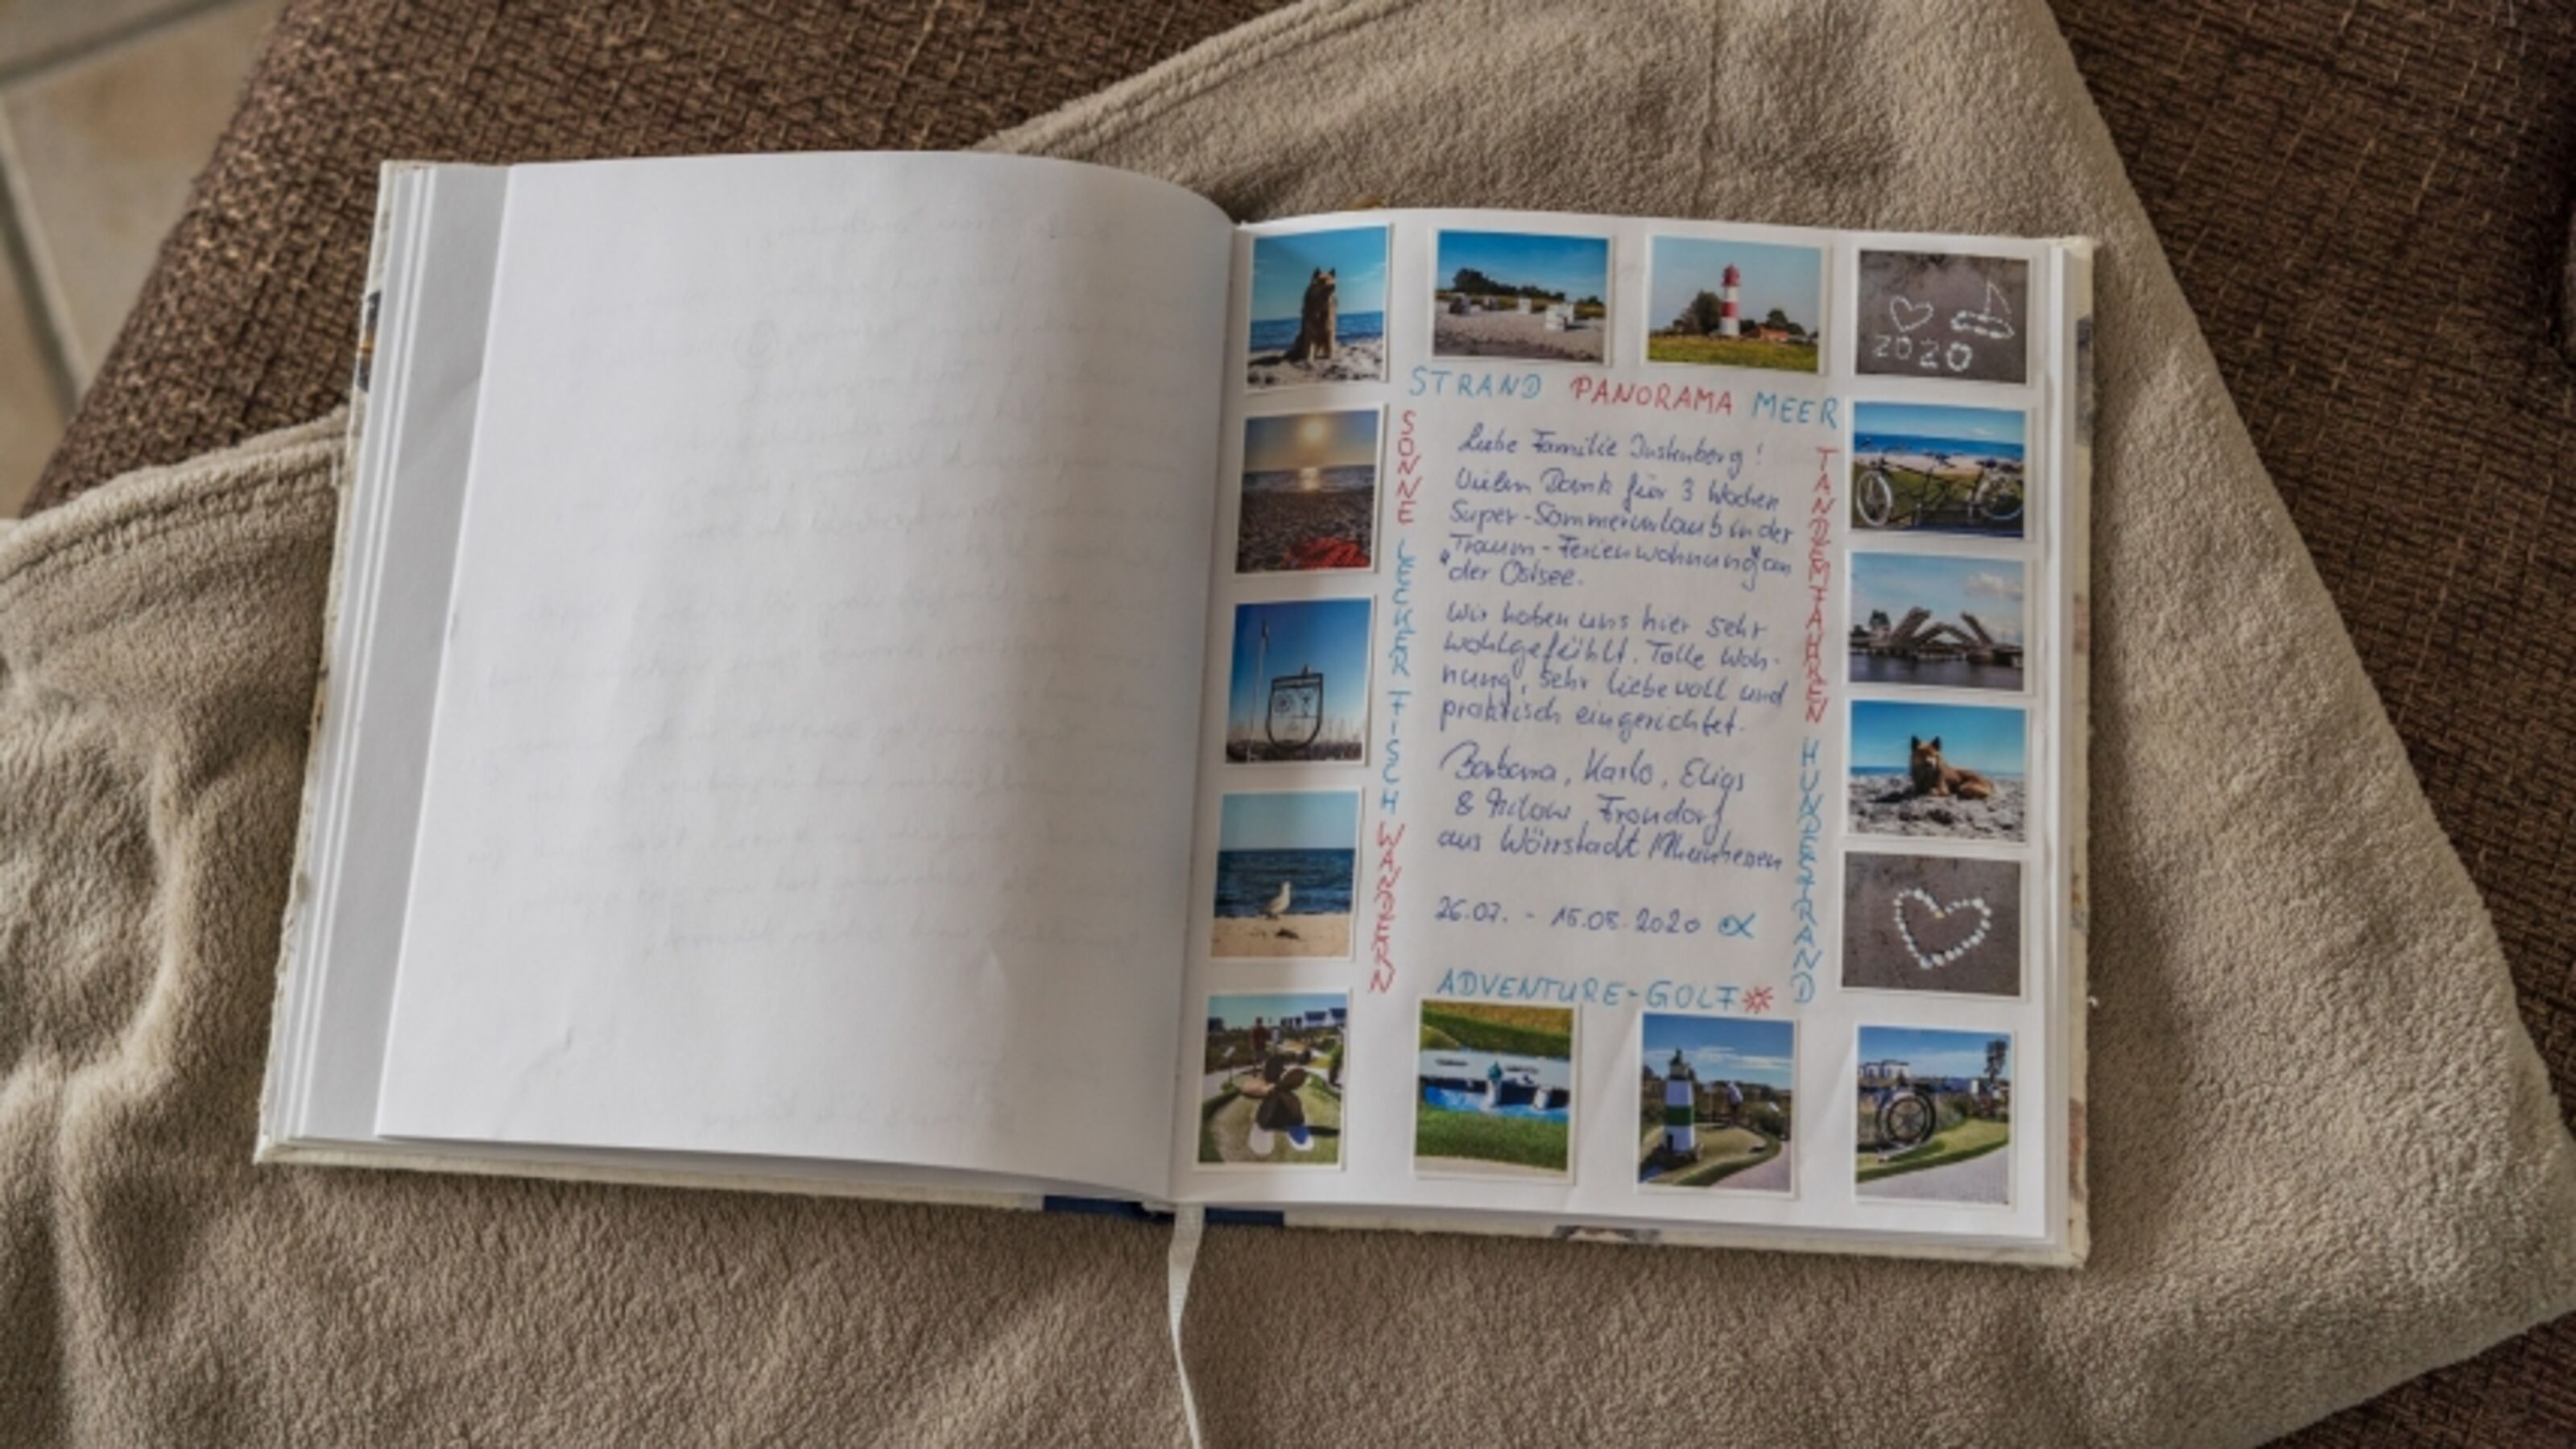 2020
STRAND PANORAMA MEER
SONNE LECKER FISCH WANDERN
Liebe Familie
Vielen Dank für 3 Wochen
Super-Sommerurlaub in der
"Traum-Ferienwohnung" an
der Ostsee.
Wir haben uns hier sehr
wohlgefühlt. Tolle Woh-
nung, sehr liebevoll und
praktisch eingerichtet.
Barbara, Karlo, Elias
& Frondorf
aus Wörrstadt/Rheinhessen
26.07. - 15.08.2020
TANDEMFAHREN HUNDESTRAND
ADVENTURE-GOLF